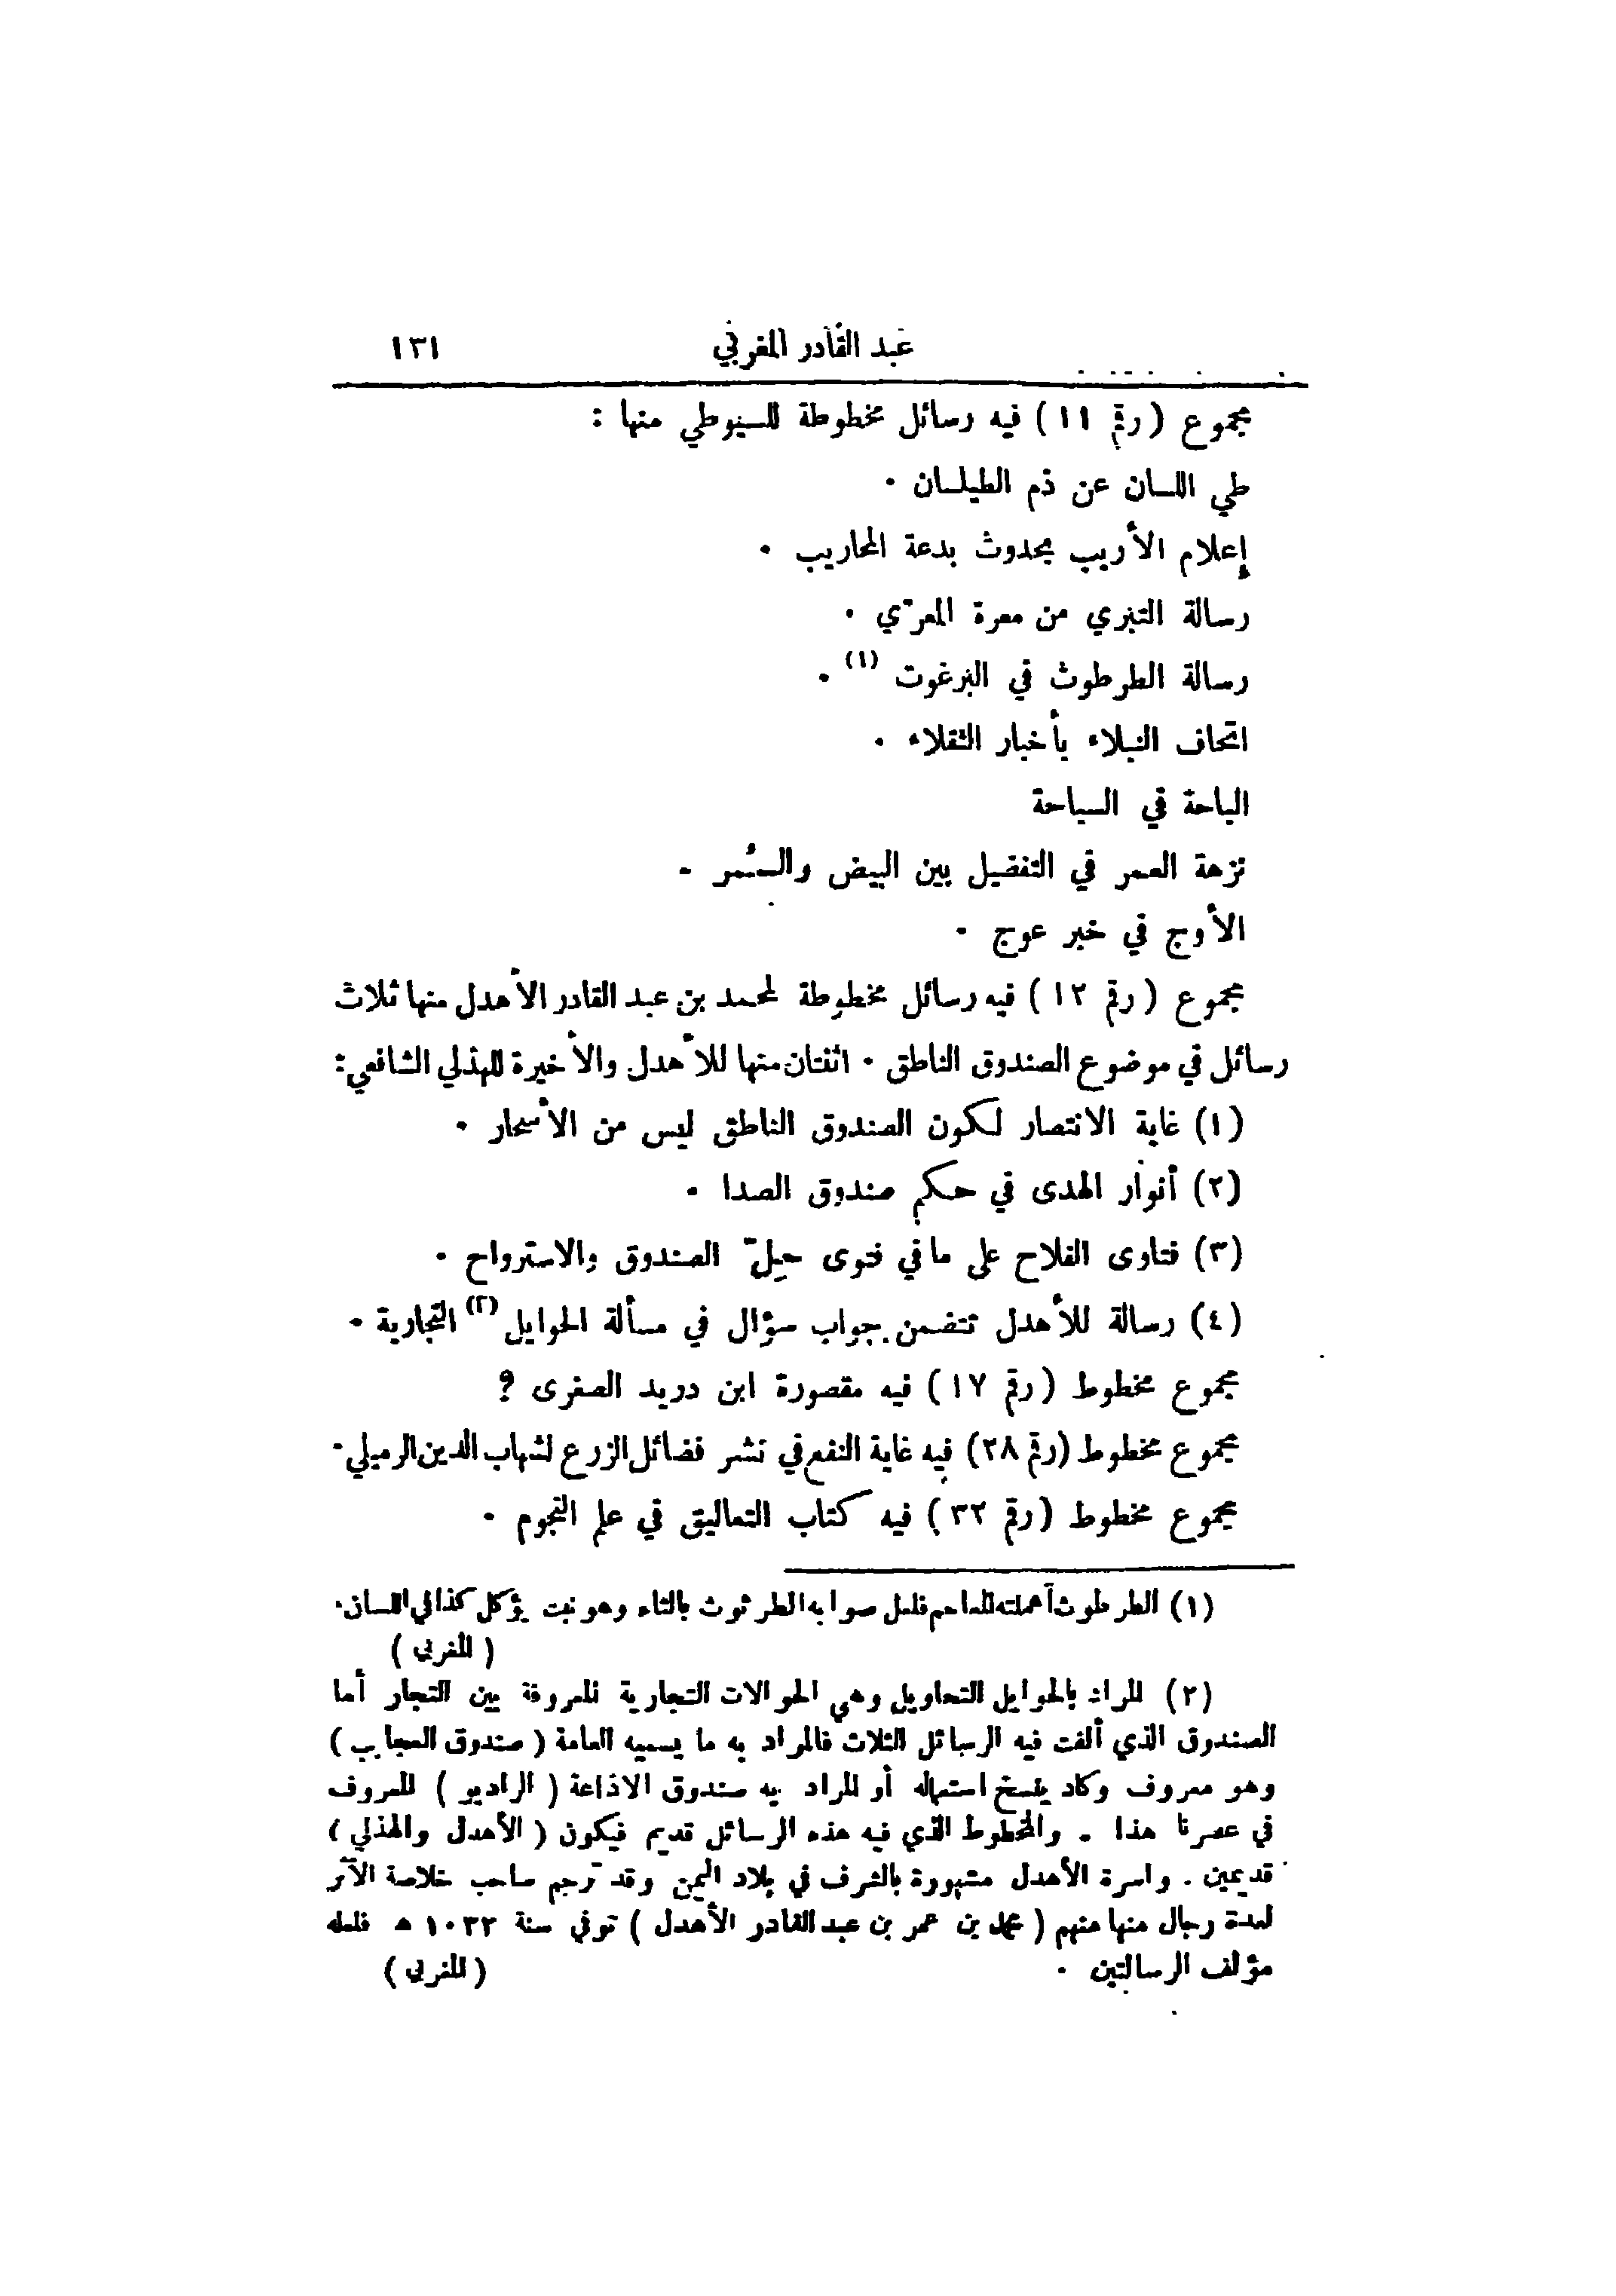 عبد القادر المغربي ١٣١
مجموع ( رقم ١١ ) فيه رسائل مخطوطة للسيوطي منها :
طي اللسان عن ذم الطيلسان .
إعلام الأريب بحدوث بدعة المحاريب .
رسالة التبري من معرة المعرّي .
رسالة الطرطوث في البرغوت (١) .
اتحاف النبلاء بأخبار الثقلاء .
الباحة في السباحة
نزهة العمر في التفضيل بين البيض والسُمر .
الأوج في خبر عوج .
مجموع ( رقم ١٢ ) فيه رسائل مخطوطة لمحمد بن عبد القادر الأهدل منها ثلاث
رسائل في موضوع الصندوق الناطق . اثنتان منها للأهدل والأخيرة للهذلي الشافعي :
(١) غاية الانتصار لكون الصندوق الناطق ليس من الأسحار .
(٢) أنوار الهدى في حكم صندوق الصدا .
(٣) فتاوى الفلاح على ما في فتوى حِلّ الصندوق والاسترواح .
(٤) رسالة للأهدل تتضمن جواب سؤال في مسألة الحوايل (٢) التجارية .
مجموع مخطوط ( رقم ١٧ ) فيه مقصورة ابن دريد الصغرى ؟
مجموع مخطوط (رقم ٢٨) فيه غاية النفع في نشر فضائل الزرع لشهاب الدين الرميلي .
مجموع مخطوط ( رقم ٣٢ ) فيه كتاب التعاليق في علم النجوم .
(١) الطرطوث أهملته المعاجم فلعل صوابه الطرثوث بالثاء وهو نبت يؤكل كذا في اللسان .
( المغربي )
(٢) المراد بالحوايل التحاويل وهي الحوالات التجارية المعروفة بين التجار أما
الصندوق الذي ألفت فيه الرسائل الثلاث فالمراد به ما يسميه العامة ( صندوق العجايب )
وهو معروف وكاد ينسخ استعماله أو المراد به صندوق الاذاعة ( الراديو ) المعروف
في عصرنا هذا . والمخطوط الذي فيه هذه الرسائل قديم فيكون ( الأهدل والهذلي )
قديمين . واسرة الأهدل مشهورة بالشرف في بلاد اليمن وقد ترجم صاحب خلاصة الأثر
لعدة رجال منها منهم ( محمد بن عمر بن عبد القادر الأهدل ) توفي سنة ١٠٣٢ هـ فلعله
مؤلف الرسالتين . ( المغربي )